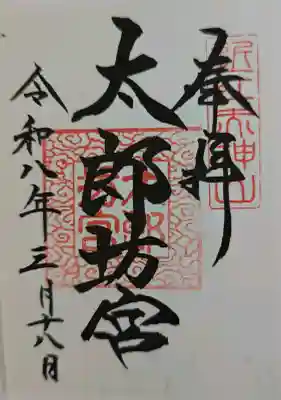 奉拝
太郎坊宮
令和八年三月十八日